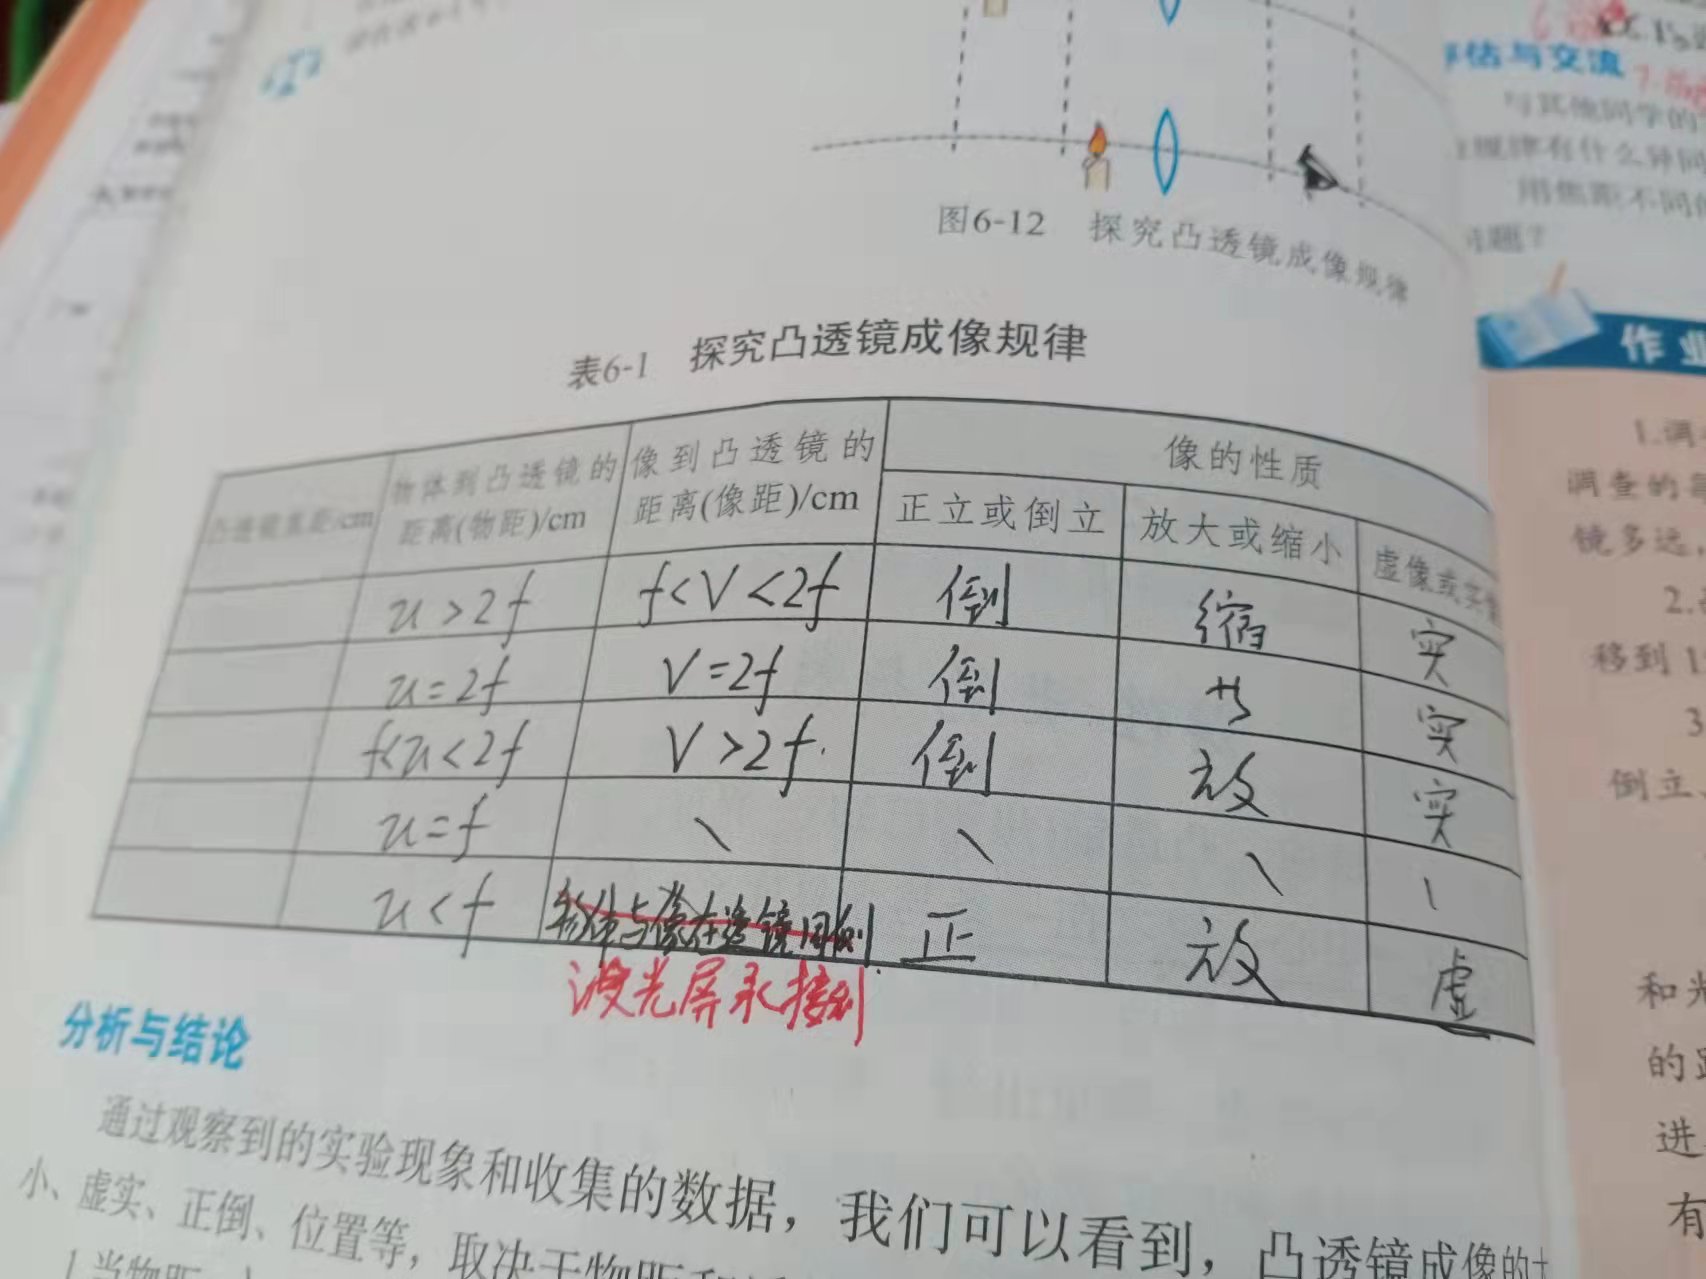 图6-12 探究凸透镜成像规律
表6-1 探究凸透镜成像规律
凸透镜焦距/cm
物体到凸透镜的
距离(物距)/cm
像到凸透镜的
距离(像距)/cm
像的性质
正立或倒立
放大或缩小
虚像或实像
u>2f f<V<2f 倒 缩 实
u=2f V=2f 倒 实
f<u<2f V>2f. 倒 放 实
u=f \ \ \ \
u<f 物体与像在透镜同侧. 正 放 虚
光屏承接到
分析与结论
通过观察到的实验现象和收集的数据，我们可以看到，凸透镜成像的
小、虚实、正倒、位置等，取决于物距
1.当物距
评估与交流
与其他同学的
规律有什么异同
用焦距不同的
问题？
作业
1.调
调查的
镜多远，
2.
移到1
3
倒立、
和光
的距
进
有